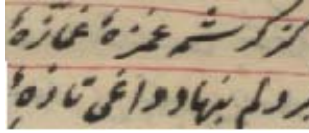 کز کرشمه غمزهٔ غمازهٔ
بر دلم بنهاد داغی تازهٔ